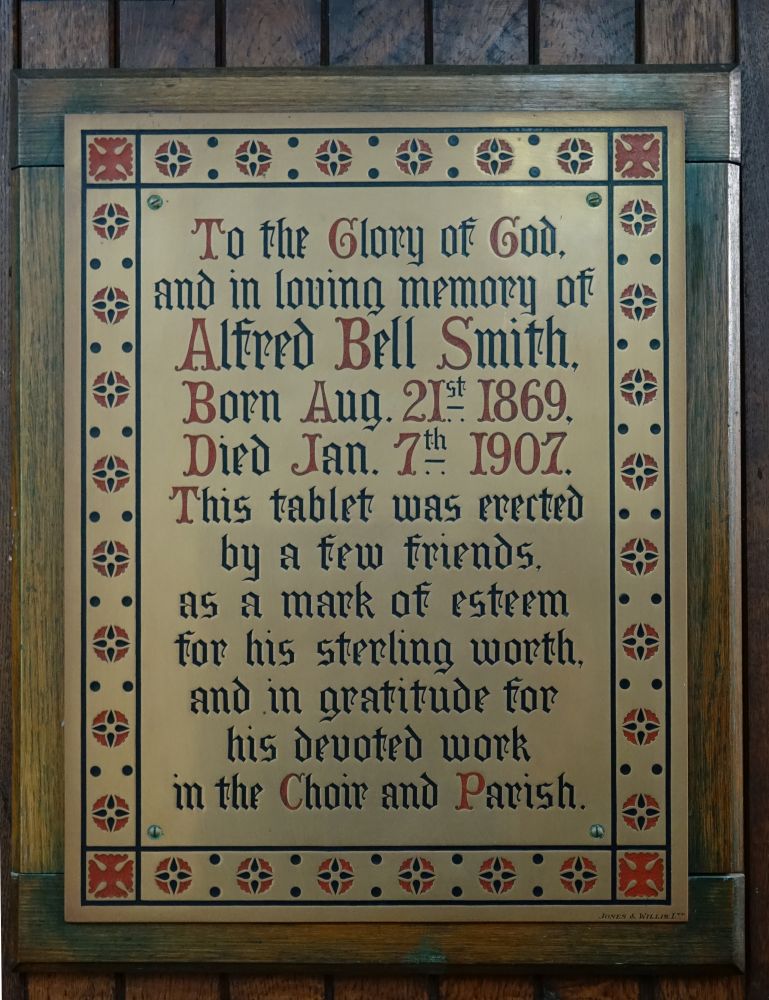 To the Glory of God,
and in loving memory of
Alfred Bell Smith,
Born Aug. 21st 1869,
Died Jan. 7th 1907.
This tablet was erected
by a few friends,
as a mark of esteem
for his sterling worth,
and in gratitude for
his devoted work
in the Choir and Parish.
Jones & Willis Ltd